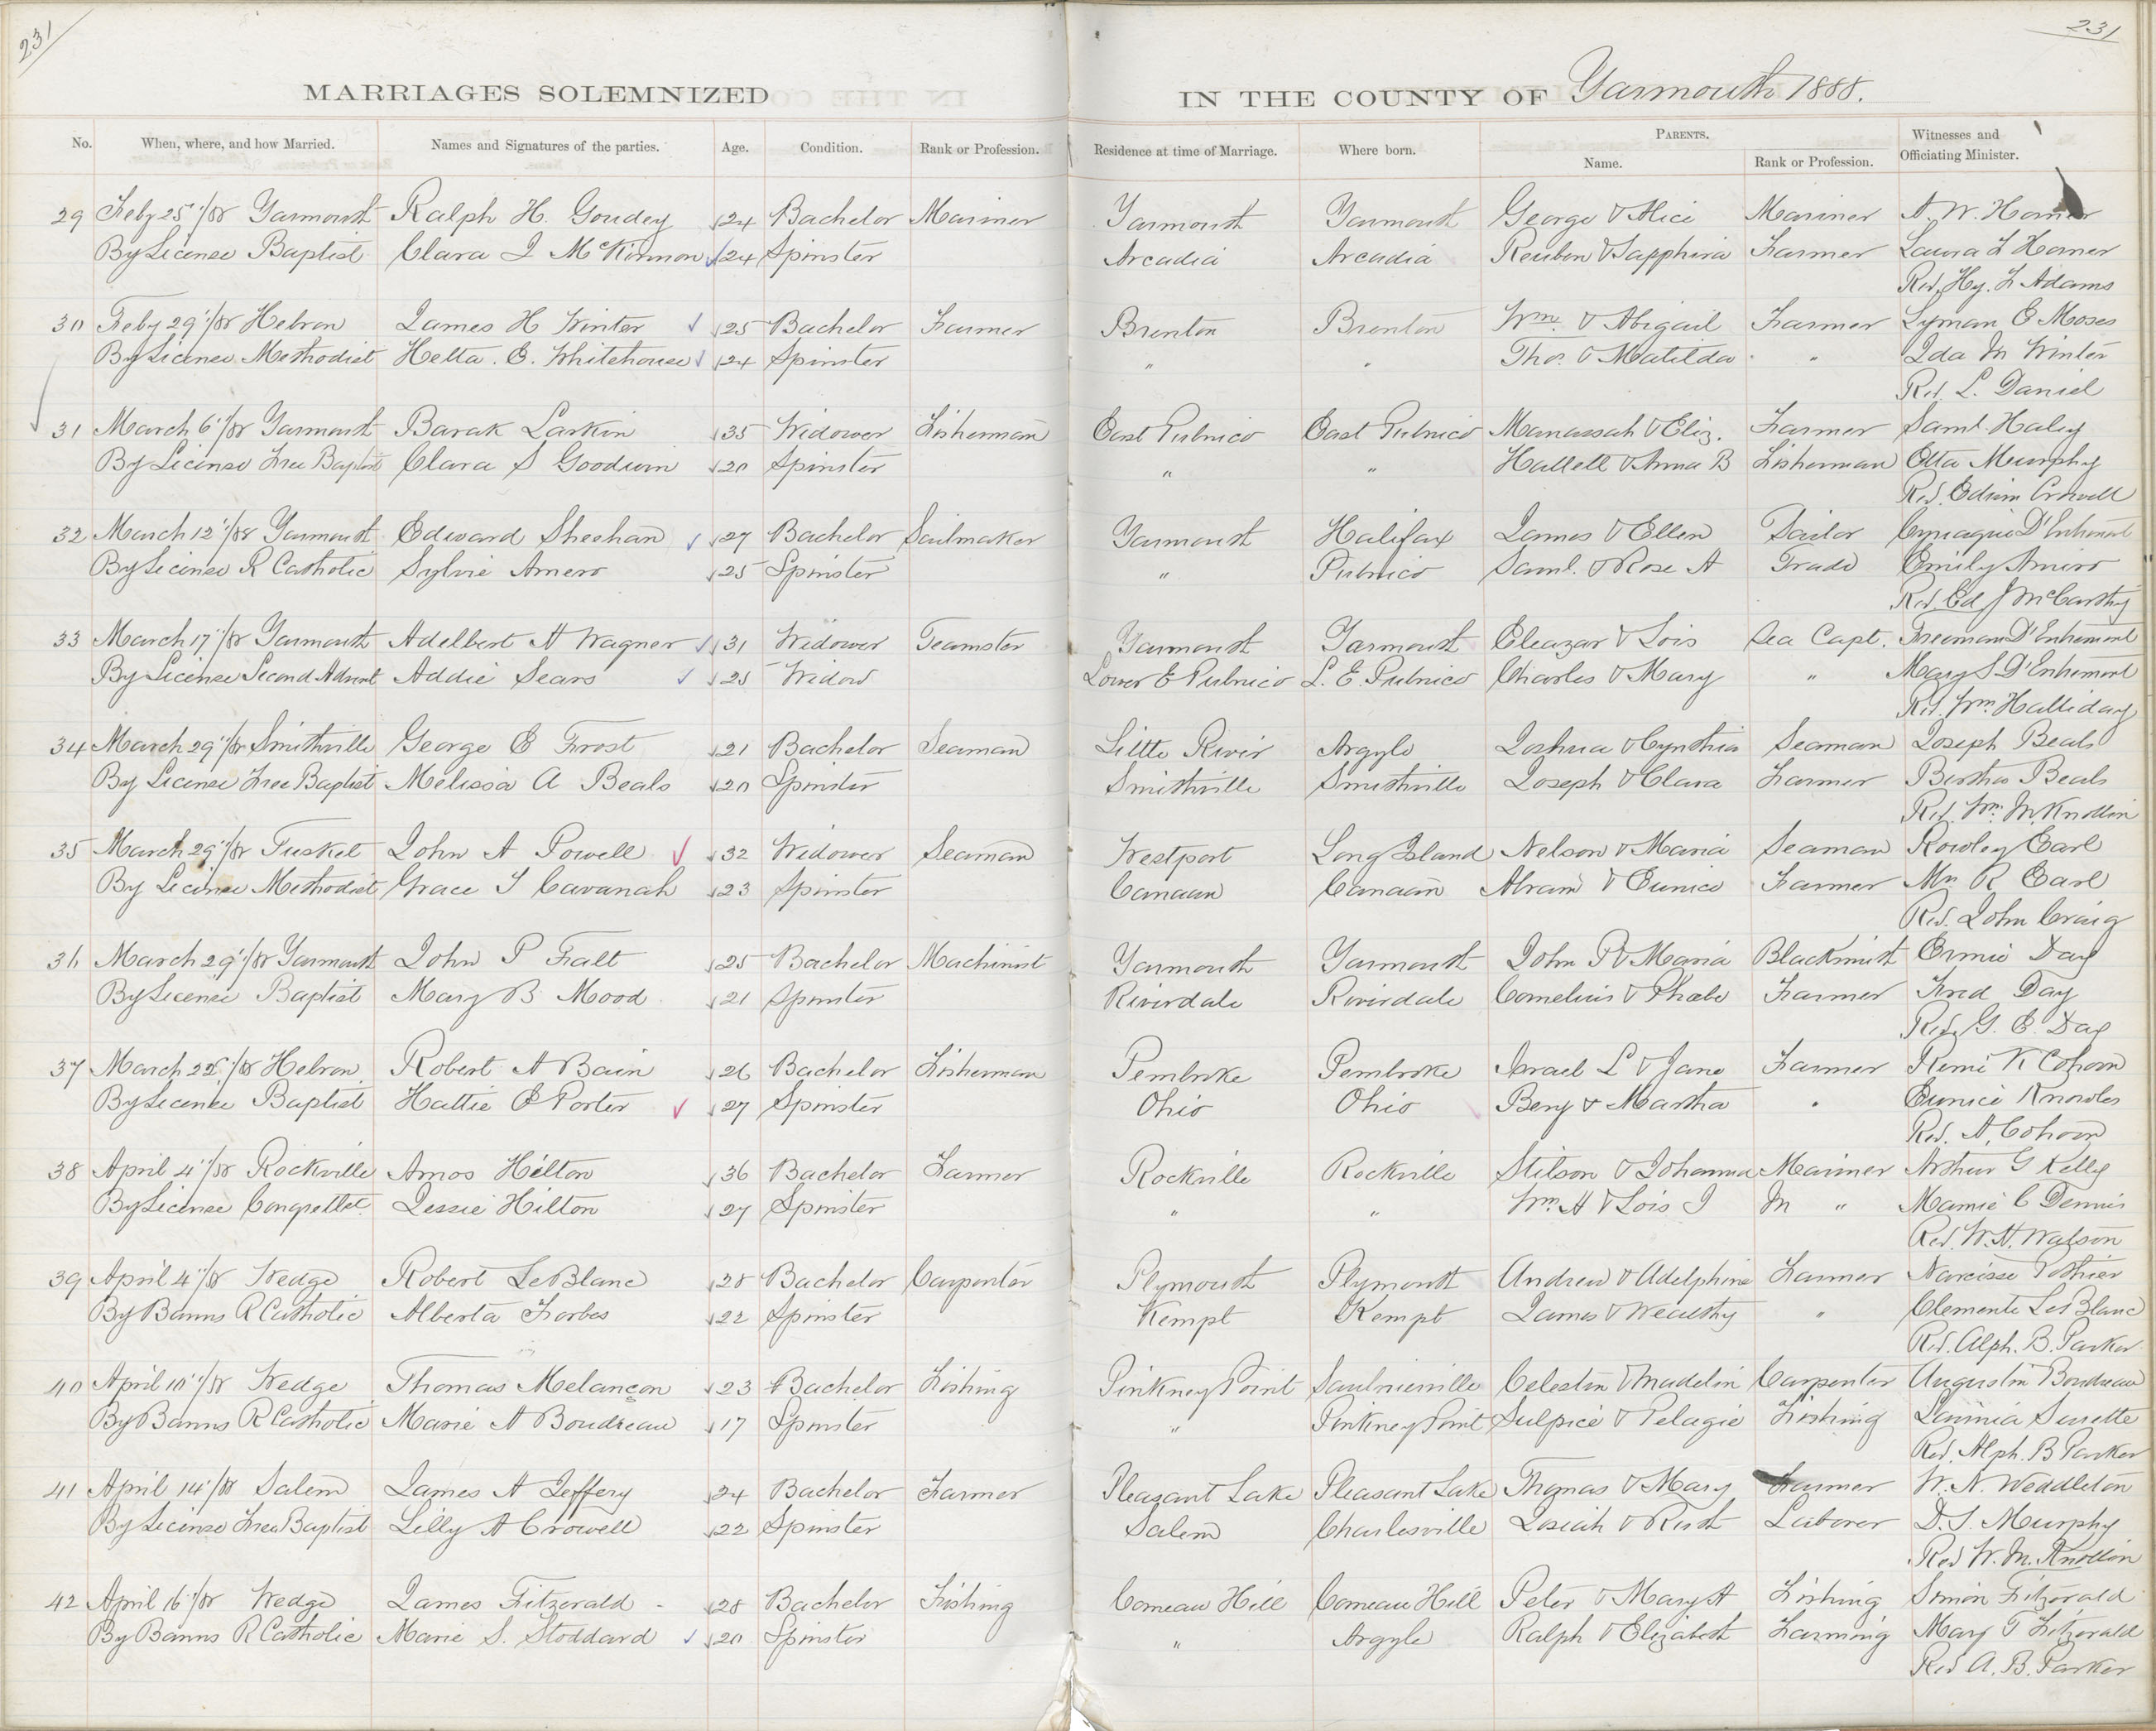 231
231
MARRIAGES SOLEMNIZED IN THE COUNTY OF Yarmouth 1888.
No. When, where, and how Married. Names and Signatures of the parties. Age. Condition. Rank or Profession. Residence at time of Marriage. Where born. PARENTS. Name. Rank or Profession. Witnesses and Officiating Minister.
29 Feby 25"/88 Yarmouth Ralph H. Goudey 24 Bachelor Mariner Yarmouth Yarmouth George & Alice Mariner A. W. Horner
By License Baptist Clara I McKinnon 24 Spinster Arcadia Arcadia Reuben & Sapphira Farmer Laura F Horner
Rev. Hy. F Adams
30 Feby 29"/88 Hebron James H Winter 25 Bachelor Farmer Brenton Brenton Wm. & Abigail Farmer Lyman E Moses
By License Methodist Helta. E. Whitehouse 24 Spinster " " Thos. & Matilda " Ida M Winter
Rev. L. Daniel
31 March 6"/88 Yarmouth Barak Larkin 35 Widower Fisherman East Pubnico East Pubnico Manassah & Eliz. Farmer Saml. Haley
By License Free Baptist Clara S Goodwin 20 Spinster " " Hallett & Anna B Fisherman Etta Murphy
Rev. Edwin Crowell
32 March 12"/88 Yarmouth Edward Sheehan 27 Bachelor Sailmaker Yarmouth Halifax James & Ellen Tailor D'Entremont
By License R Catholic Sylvie Amero 25 Spinster " Pubnico Saml. & Rose A Trade Emily Amiro
Rev. Ed J McCarthy
33 March 17"/88 Yarmouth Adelbert A Wagner 31 Widower Teamster Yarmouth Yarmouth Eleazar & Lois Sea Capt. Freeman D'Entremont
By License Second Advent Addie Sears 25 Widow Lower E Pubnico L. E. Pubnico Charles & Mary " Mary S D'Entremont
Rev. Wm. Halliday
34 March 29"/88 Smithville George E Frost 21 Bachelor Seaman Little River Argyle Joshua & Cynthia Seaman Joseph Beals
By License Free Baptist Melissa A Beals 20 Spinster Smithville Smithville Joseph & Clara Farmer Bertha Beals
Rev. Wm. M. Knollin
35 March 29"/88 Tusket John A Powell 32 Widower Seaman Westport Long Island Nelson & Maria Seaman Rowley Earl
By License Methodist Grace T Cavanah 23 Spinster Canaan Canaan Abram & Eunice Farmer Mrs R Earl
Rev. John Craig
36 March 29"/88 Yarmouth John P Fralt 25 Bachelor Machinist Yarmouth Yarmouth John P & Maria Blacksmith Ermie Day
By License Baptist Mary B Mood 21 Spinster Riverdale Riverdale Cornelius & Phœbe Farmer Fred Day
Rev. G. E. Day
37 March 22"/88 Hebron Robert A Bain 26 Bachelor Fisherman Pembroke Pembroke Israel L & Jane Farmer K Cohoon
By License Baptist Hattie E Porter 27 Spinster Ohio Ohio Benj & Martha " Eunice Knowles
Rev. A. Cohoon
38 April 4"/88 Rockville Amos Hilton 36 Bachelor Farmer Rockville Rockville Stilson & Johanna Mariner Arthur G Kelley
By License Congrellst. Jessie Hilton 27 Spinster " " Wm. H & Lois J M " Mamie C Dennis
Rev. W. H. Watson
39 April 4"/88 Wedge Robert LeBlanc 28 Bachelor Carpenter Plymouth Plymouth Andrew & Adelphine Farmer Narcisse Pothier
By Banns R Catholic Alberta Forbes 22 Spinster Kempt Kempt James & Wealthy " Clemente LeBlanc
Rev. Alph. B. Parker
40 April 10"/88 Wedge Thomas Melançon 23 Bachelor Fishing Pinkney Point Saulnierville Celestin & Madelin Carpenter Augustin Boudreau
By Banns R Catholic Marie A Boudreau 17 Spinster " Pinkney Point Sulpice & Pelagie Fishing Lavinia Surette
Rev. Alph. B Parker
41 April 14"/88 Salem James A Jeffery 24 Bachelor Farmer Pleasant Lake Pleasant Lake Thomas & Mary Farmer W. A. Weddleton
By License Free Baptist Lilly A Crowell 22 Spinster Salem Charlesville Josiah & Ruth Laborer D. S. Murphy
Rev W. M. Knollin
42 April 16"/88 Wedge James Fitzerald 28 Bachelor Fishing Comeau Hill Comeau Hill Peter & Mary A Fishing Simon Fitzerald
By Banns R Catholic Marie S. Stoddard 20 Spinster " Argyle Ralph & Elizabeth Farming Mary T Fitzerald
Rev A. B. Parker